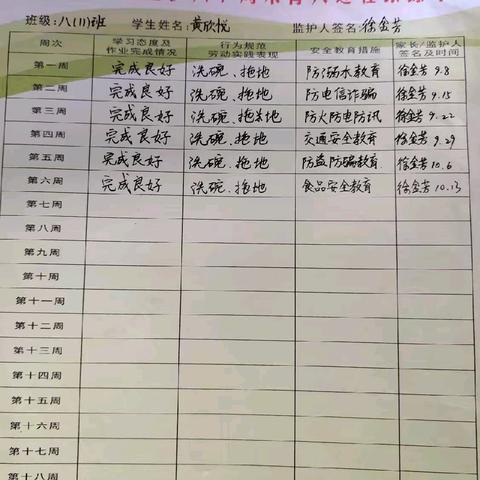 班级:八(11)班 学生姓名:黄欣悦 监护人签名:徐金芳
周次 学习态度及作业完成情况 行为规范劳动实践表现 安全教育措施 家长/监护人签名及时间
第一周 完成良好 洗碗、拖地 防溺水教育 徐金芳 9.8
第二周 完成良好 洗碗、拖地 防电信诈骗 徐金芳 9.15
第三周 完成良好 洗碗、拖地 防火防电防汛 徐金芳 9.22
第四周 完成良好 洗碗、拖地 交通安全教育 徐金芳 9.29
第五周 完成良好 洗碗、拖地 防盗防骗教育 徐金芳 10.6
第六周 完成良好 洗碗、拖地 食品安全教育 徐金芳 10.13
第七周
第八周
第九周
第十周
第十一周
第十二周
第十三周
第十四周
第十五周
第十六周
第十七周
第十八周